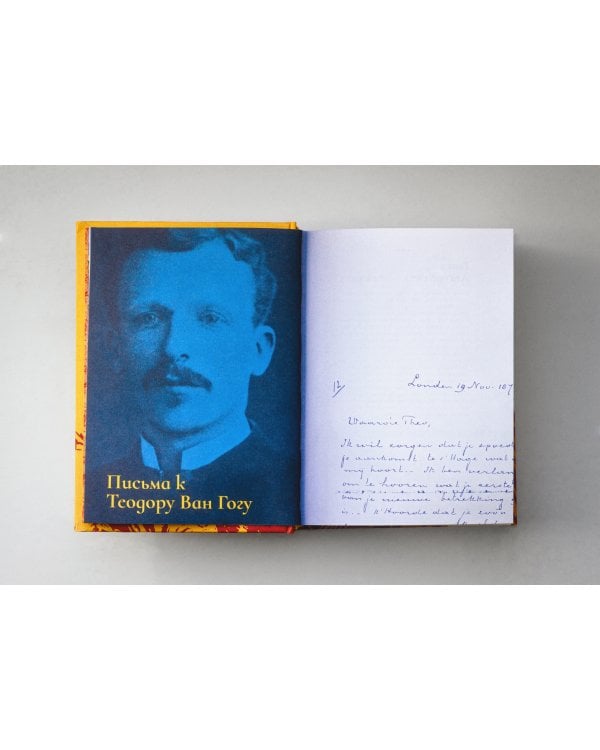 Письма к
Теодору Ван Гогу
12/
London 19 Nov. 187
Waarde Theo,
Ik wil zorgen dat je spoed
je aankomst te s'Hage wat
my hoort.. Ik ben verlan
om te hooren wat je eerste
betrekking
is... k'Hoorde dat je